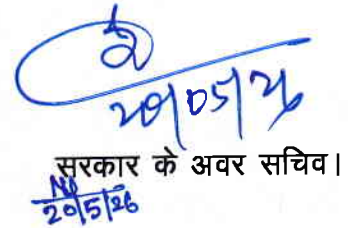 20/05/26
सरकार के अवर सचिव।
20/5/26